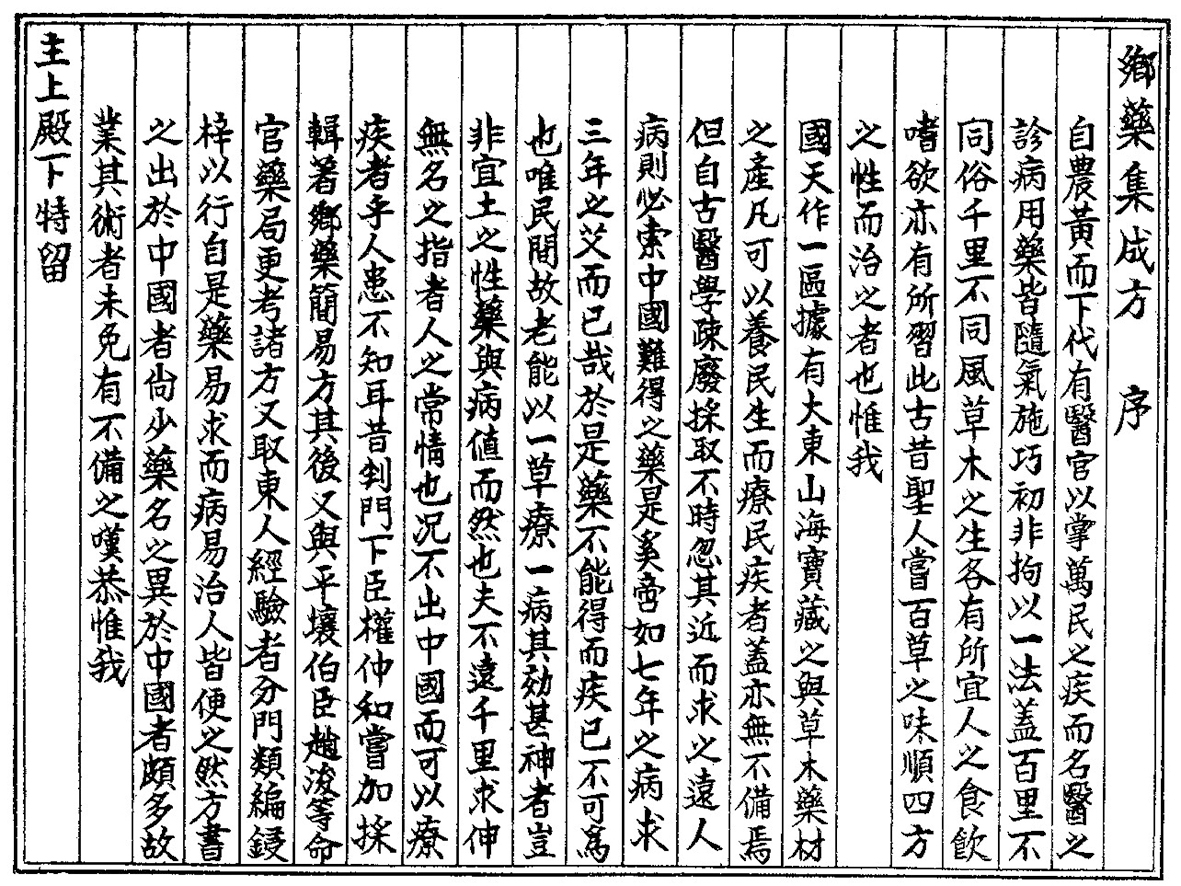 鄕藥集成方　序
自農黃而下代有醫官以掌萬民之疾而名醫之
診病用藥皆隨氣施巧初非拘以一法蓋百里不
同俗千里不同風草木之生各有所宜人之食飮
嗜欲亦有所習此古昔聖人嘗百草之味順四方
之性而治之者也惟我
國天作一區據有大東山海寶藏之興草木藥材
之產凡可以養民生而療民疾者蓋亦無不備焉
但自古醫學疎廢採取不時忽其近而求之遠人
病則必索中國難得之藥是奚啻如七年之病求
三年之艾而已哉於是藥不能得而疾已不可爲
也唯民間故老能以一草療一病其効甚神者豈
非宜土之性藥與病値而然也夫不遠千里求伸
無名之指者人之常情也况不出中國而可以療
疾者乎人患不知耳昔判門下臣權仲和嘗加採
輯著鄕藥簡易方其後又與平壤伯臣趙浚等命
官藥局更考諸方又取東人經驗者分門類編鋟
梓以行自是藥易求而病易治人皆便之然方書
之出於中國者尙少藥名之異於中國者頗多故
業其術者未免有不備之嘆恭惟我
主上殿下特留